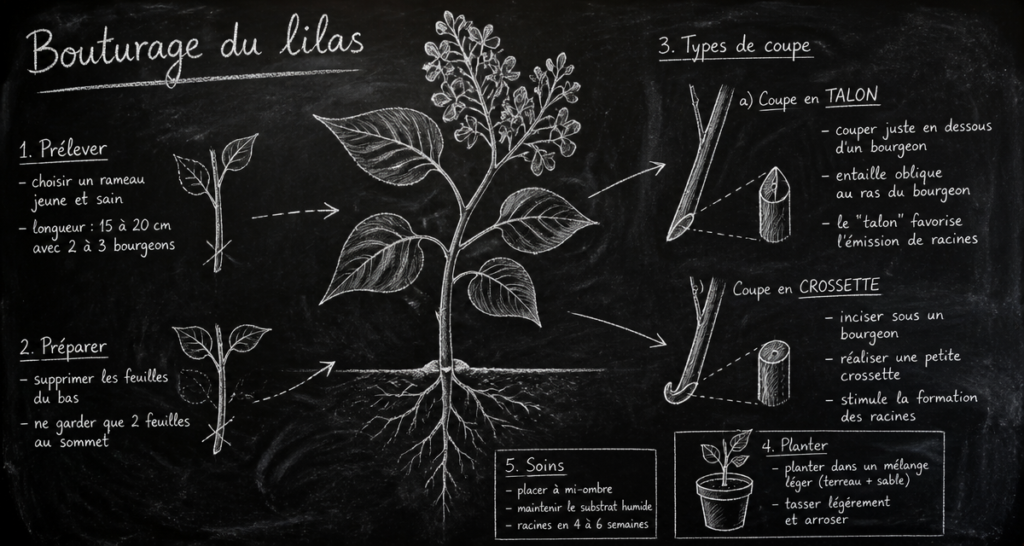 Bouturage du lilas
1. Prélever
- choisir un rameau
jeune et sain
- longueur : 15 à 20 cm
avec 2 à 3 bourgeons
2. Préparer
- supprimer les feuilles
du bas
- ne garder que 2 feuilles
au sommet
3. Types de coupe
a) Coupe en TALON
- couper juste en dessous
d'un bourgeon
- entaille oblique
au ras du bourgeon
- le "talon" favorise
l'émission de racines
Coupe en CROSSETTE
- inciser sous un
bourgeon
- réaliser une petite
crossette
- stimule la formation
des racines
4. Planter
- planter dans un mélange
léger (terreau + sable)
- tasser légérement
et arroser
5. Soins
- placer à mi-ombre
- maintenir le substrat humide
- racines en 4 à 6 semaines